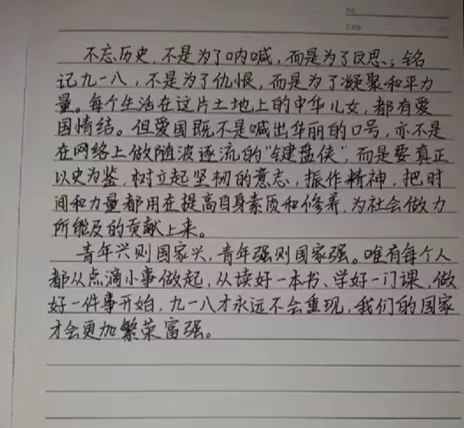 No.
Date
不忘历史，不是为了呐喊，而是为了反思；铭
记九一八，不是为了仇恨，而是为了凝聚和平力
量。每个生活在这片土地上的中华儿女，都有爱
国情结。但爱国既不是喊出华丽的口号，亦不是
在网络上做随波逐流的“键盘侠”，而是要真正
以史为鉴，树立起坚韧的意志，振作精神，把时
间和力量都用在提高自身素质和修养，为社会做力
所能及的贡献上来。
青年兴则国家兴，青年强则国家强。唯有每个人
都从点滴小事做起，从读好一本书、学好一门课、做
好一件事开始，九一八才永远不会重现，我们的国家
才会更加繁荣富强。